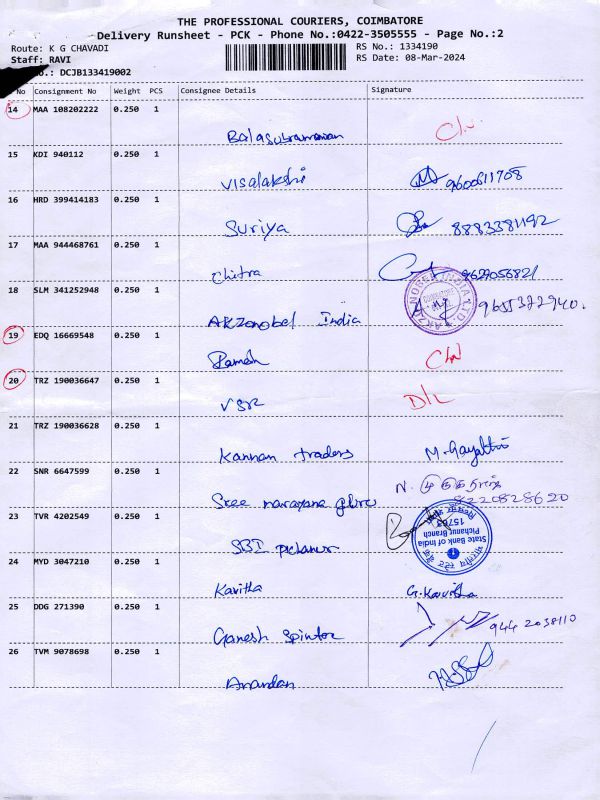 THE PROFESSIONAL COURIERS, COIMBATORE
Delivery Runsheet - PCK - Phone No.:0422-3505555 - Page No.:2
Route: K G CHAVADI
RS No.: 1334190
Staff: RAVI
RS Date: 08-Mar-2024
No.: DCJB133419002
No Consignment No Weight PCS Consignee Details Signature
14 MAA 108202222 0.250 1
Balasubramanian
15 KDI 940112 0.250 1
Visalakshi 9600611708
16 HRD 399414183 0.250 1
Suriya 8883381192
17 MAA 944468761 0.250 1
Chitra 9629056821
18 SLM 341252948 0.250 1
AKZonobel India 9655272940.
AKZO NOBEL INDIA LTD.
19 EDQ 16669548 0.250 1
Ramesh
20 TRZ 190036647 0.250 1
VSR D/L
21 TRZ 190036628 0.250 1
Kannan traders M.Gayathri
22 SNR 6647599 0.250 1
Sree narayana guru 8220828620
23 TVR 4202549 0.250 1
SBI pichanur
State Bank of India
Pichanur Branch
15763
24 MYD 3047210 0.250 1
Kavitha G.Kavitha
25 DDG 271390 0.250 1
Ganesh Spintex 944 2038110
26 TVM 9078698 0.250 1
Anandan